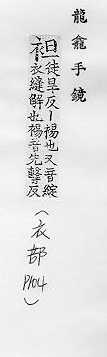 龍龕手鏡
袒徒旱反丨裼也又音綻
衣縫解也裼音先擊反
(衣部 P104)